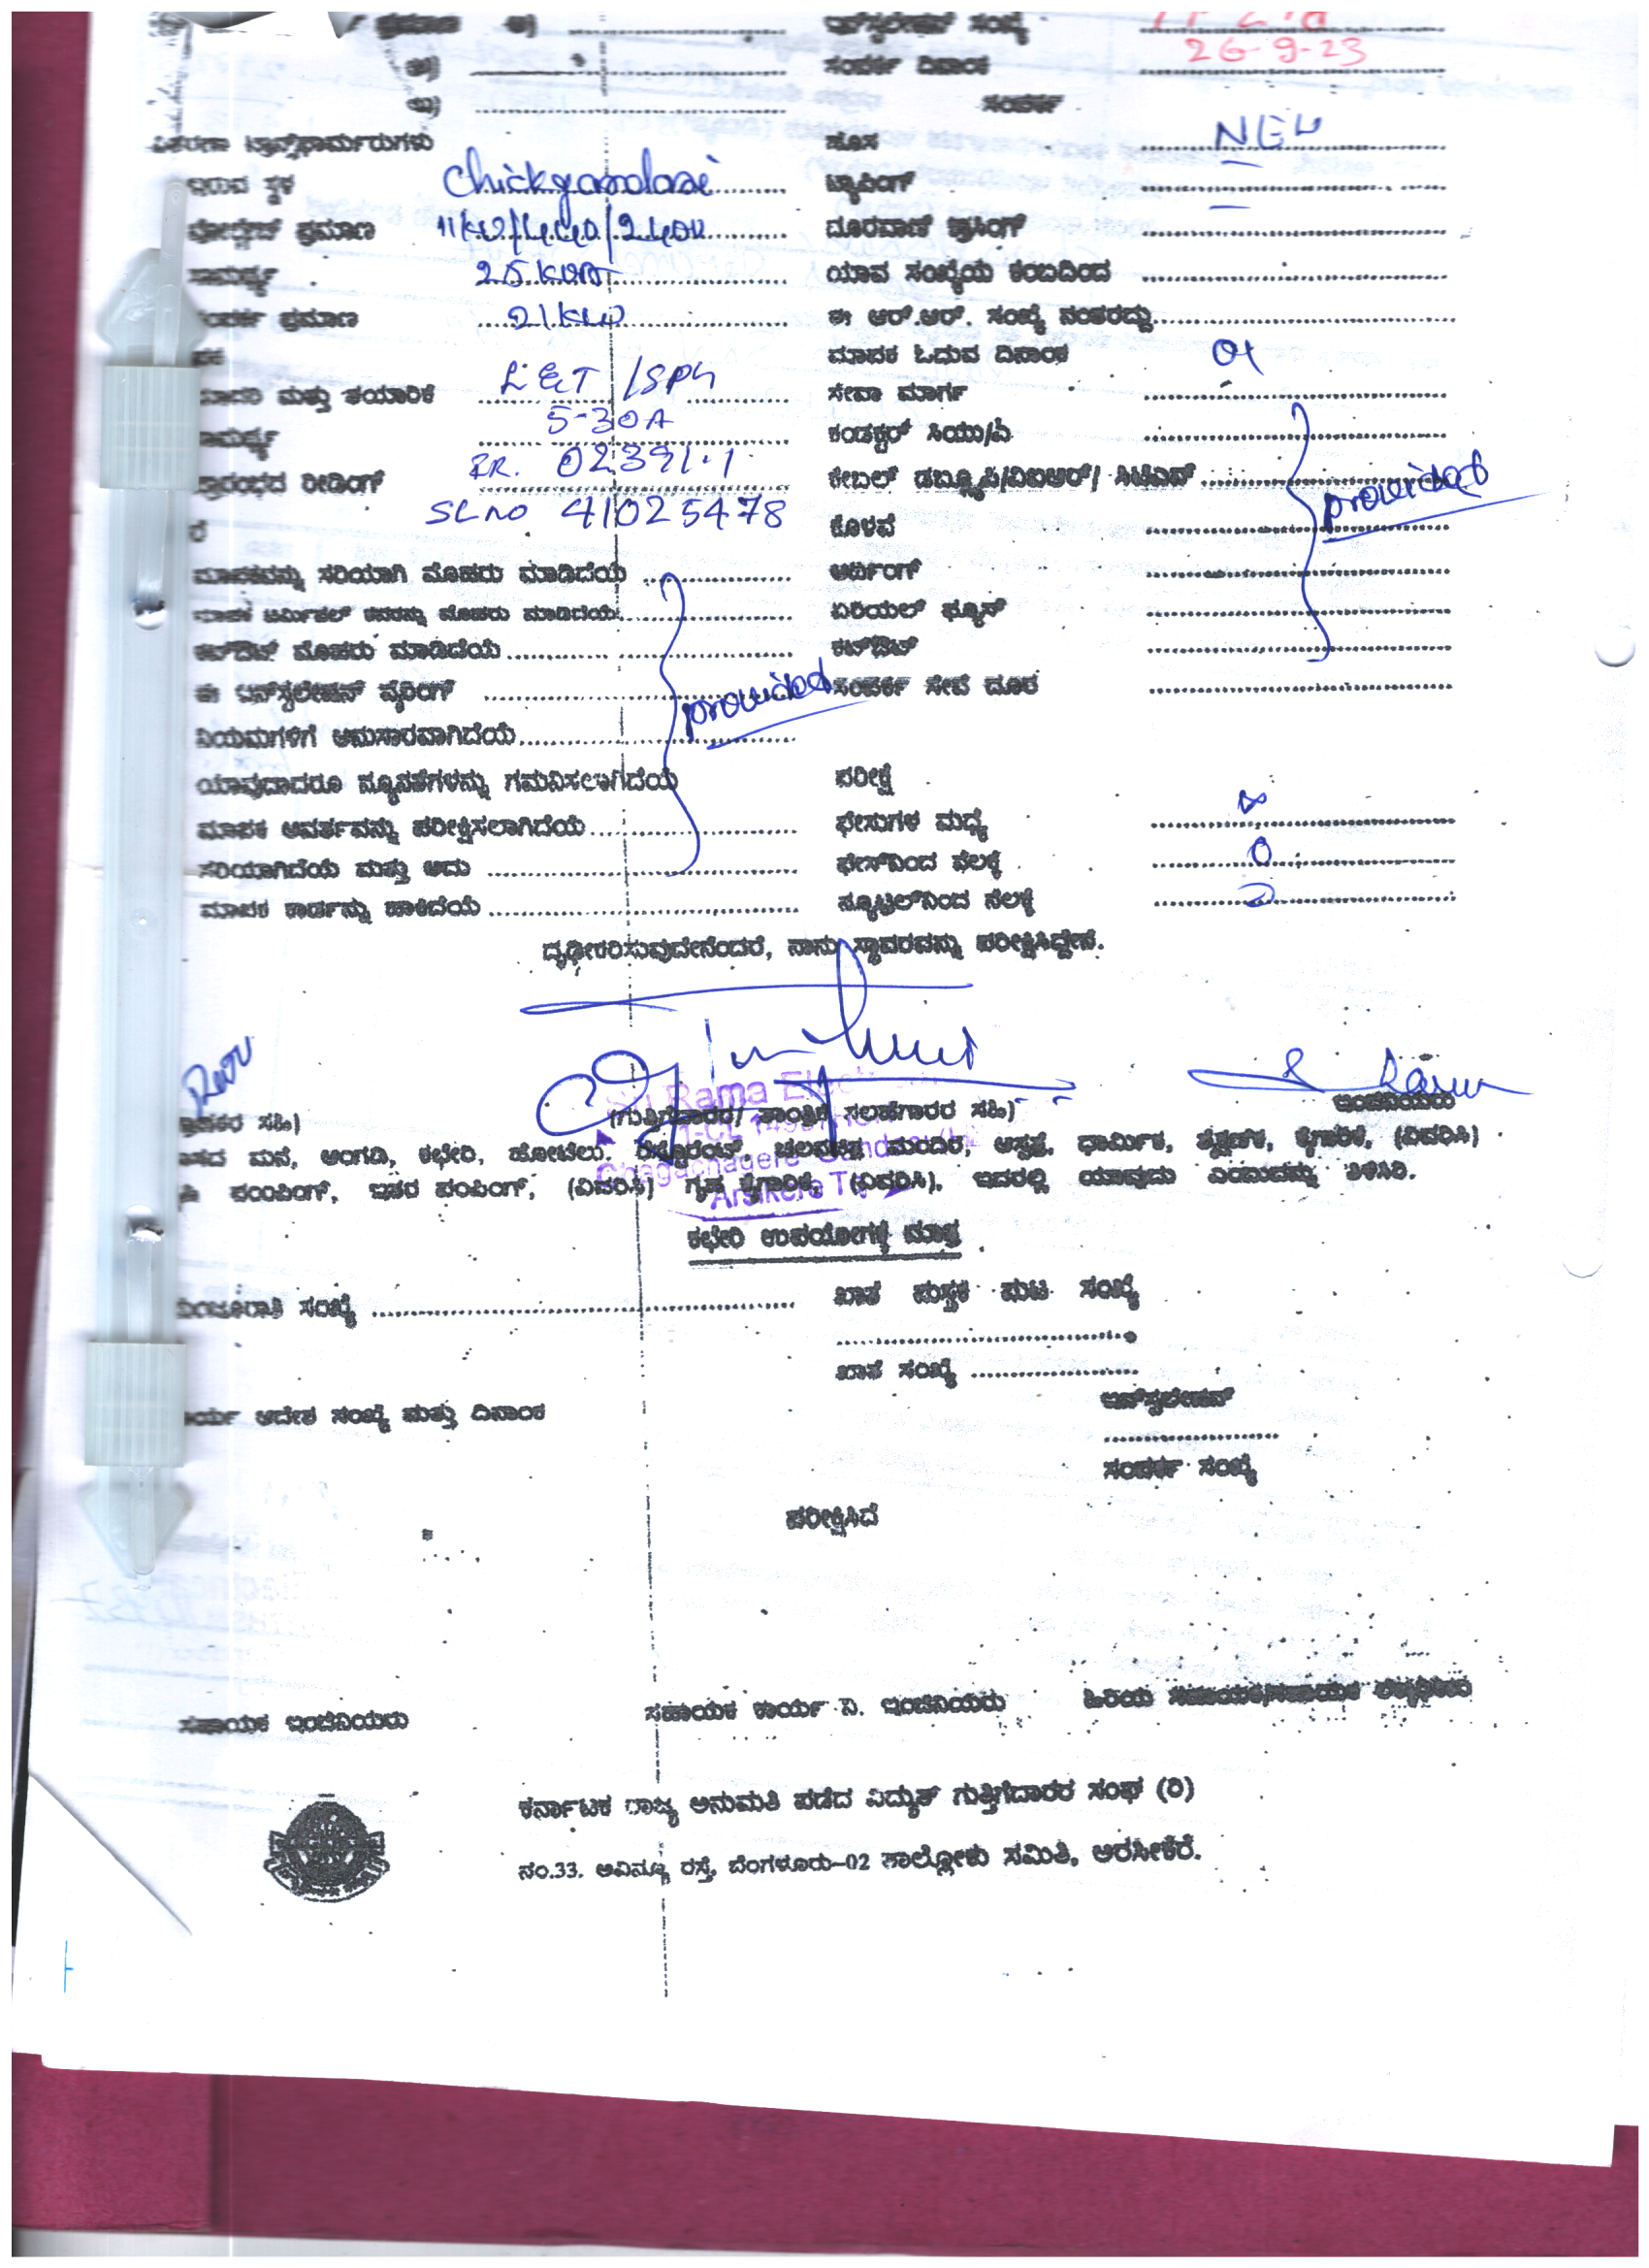 ಪ್ರಮಾಣ ಅ) ಇನ್‌ಸ್ಟಲೇಷನ್ ಸಂಖ್ಯೆ
ಸಂಪರ್ಕ ದಿನಾಂಕ 26-9-23
ಸಂಪರ್ಕ
ವಿತರಣಾ ಟ್ರಾನ್ಸ್‌ಫಾರ್ಮರುಗಳು ಹೊಸ NEW
ಇರುವ ಸ್ಥಳ ಟ್ಯಾಪಿಂಗ್
ವೋಲ್ಟೇಜ್ ಪ್ರಮಾಣ ದೂರವಾಣಿ ಕ್ರಾಸಿಂಗ್
ಸಾಮರ್ಥ್ಯ 25 KVA ಯಾವ ಸಂಖ್ಯೆಯ ಕಂಬದಿಂದ
ಸಂಪರ್ಕ ಪ್ರಮಾಣ ಈ ಆರ್.ಆರ್. ಸಂಖ್ಯೆ ನಂತರದ್ದು
ಮಾಪಕ ಓದುವ ದಿನಾಂಕ
ಮಾದರಿ ಮತ್ತು ತಯಾರಿಕೆ L&T ಸೇವಾ ಮಾರ್ಗ
ಸಾಮರ್ಥ್ಯ 5-30A ಕಂಡಕ್ಟರ್ ಸಿಯು/ಎ
ಪ್ರಾರಂಭದ ರೀಡಿಂಗ್ 02391.1 ಕೇಬಲ್ ಡಬ್ಲ್ಯೂಪಿ/ವಿಐಆರ್/ ಸಿಟಿಎಸ್ provided
SL no 41025478 ಕೊಳವೆ
ಮಾಪಕವನ್ನು ಸರಿಯಾಗಿ ಮೊಹರು ಮಾಡಿದೆಯೆ ಅರ್ಥಿಂಗ್
ಮಾಪಕ ಟರ್ಮಿನಲ್ ಕವರನ್ನು ಮೊಹರು ಮಾಡಿದೆಯೆ ಏರಿಯಲ್ ಫ್ಯೂಸ್
ಕಟ್‌ಔಟ್ ಮೊಹರು ಮಾಡಿದೆಯೆ ಕಟ್‌ಔಟ್
ಈ ಇನ್‌ಸ್ಟಲೇಷನ್ ವೈರಿಂಗ್ provided ಸಂಪರ್ಕ ಸೇವೆ ದೂರ
ನಿಯಮಗಳಿಗೆ ಅನುಸಾರವಾಗಿದೆಯೆ
ಯಾವುದಾದರೂ ನ್ಯೂನತೆಗಳನ್ನು ಗಮನಿಸಲಾಗಿದೆಯೆ ಪರೀಕ್ಷೆ
ಮಾಪಕ ಆವರ್ತವನ್ನು ಪರೀಕ್ಷಿಸಲಾಗಿದೆಯೆ ಫೇಸುಗಳ ಮಧ್ಯೆ
ಸರಿಯಾಗಿದೆಯೆ ಮತ್ತು ಅದು ಫೇಸ್‌ನಿಂದ ನೆಲಕ್ಕೆ 0
ಮಾಪಕ ಕಾರ್ಡನ್ನು ಹಾಕಿದೆಯೆ ನ್ಯೂಟ್ರಲ್‌ನಿಂದ ನೆಲಕ್ಕೆ
ದೃಢೀಕರಿಸುವುದೇನೆಂದರೆ, ನಾನು ಸ್ಥಾವರವನ್ನು ಪರೀಕ್ಷಿಸಿದ್ದೇನೆ.
ಗ್ರಾಹಕರ ಸಹಿ) (ಗುತ್ತಿಗೆದಾರರ/ ತಾಂತ್ರಿಕ ಸಲಹೆಗಾರರ ಸಹಿ) ಇಂಜಿನಿಯರು
ವಾಸದ ಮನೆ, ಅಂಗಡಿ, ಕಛೇರಿ, ಹೋಟೆಲು, ರೆಸ್ಟೊರೆಂಟ್, ಚಲನಚಿತ್ರ ಮಂದಿರ, ಆಸ್ಪತ್ರೆ, ಧಾರ್ಮಿಕ, ಶೈಕ್ಷಣಿಕ, ಕೈಗಾರಿಕೆ, (ವಿವರಿಸಿ)
ಪಂಪಿಂಗ್, ಇತರ ಪಂಪಿಂಗ್, (ವಿವರಿಸಿ) ಗೃಹ ಕೈಗಾರಿಕೆ, (ವಿವರಿಸಿ), ಇದರಲ್ಲಿ ಯಾವುದು ಎಂಬುದನ್ನು ತಿಳಿಸಿರಿ.
Rama
Arsikere
ಕಛೇರಿ ಉಪಯೋಗಕ್ಕೆ ಮಾತ್ರ
ಮಂಜೂರಾತಿ ಸಂಖ್ಯೆ ಖಾತೆ ಪುಸ್ತಕ ಪುಟ ಸಂಖ್ಯೆ
ಖಾತೆ ಸಂಖ್ಯೆ
ಕಾರ್ಯ ಆದೇಶ ಸಂಖ್ಯೆ ಮತ್ತು ದಿನಾಂಕ ಇನ್‌ಸ್ಟಲೇಷನ್
ಸಂಪರ್ಕ ಸಂಖ್ಯೆ
ಪರೀಕ್ಷಿಸಿದೆ
ಸಹಾಯಕ ಇಂಜಿನಿಯರು ಸಹಾಯಕ ಕಾರ್ಯ ನಿ. ಇಂಜಿನಿಯರು ಹಿರಿಯ
ಕರ್ನಾಟಕ ರಾಜ್ಯ ಅನುಮತಿ ಪಡೆದ ವಿದ್ಯುತ್ ಗುತ್ತಿಗೆದಾರರ ಸಂಘ (ರಿ)
ನಂ.33. ಅವಿನ್ಯೂ ರಸ್ತೆ, ಬೆಂಗಳೂರು-02 ತಾಲ್ಲೋಕು ಸಮಿತಿ, ಅರಸೀಕೆರೆ.